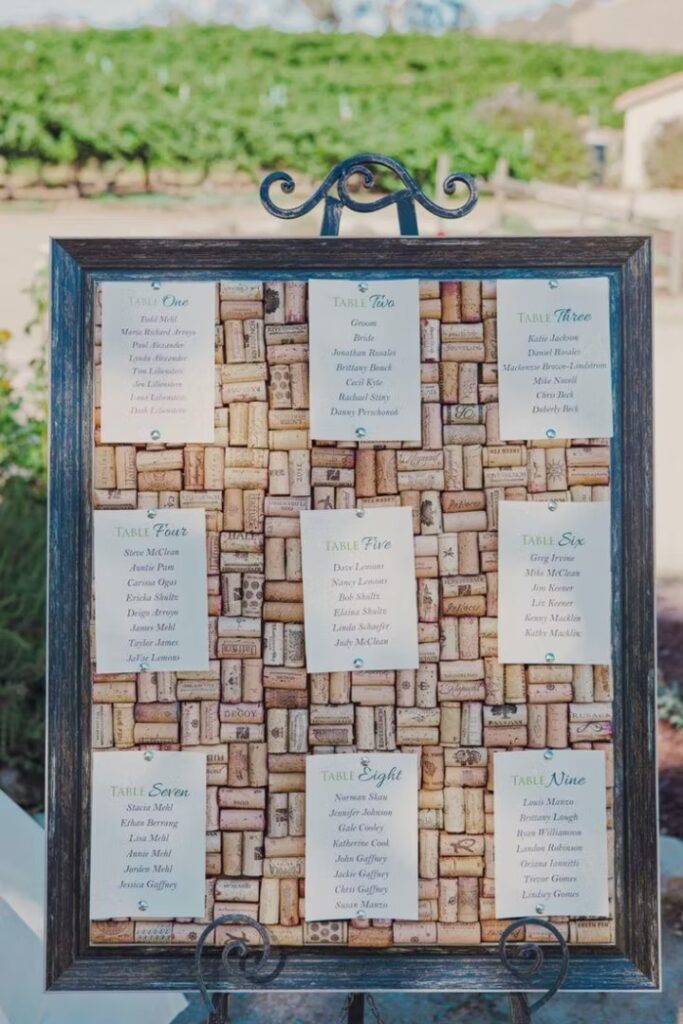 TABLE One
Todd Mehl
Maria Richard Arroyo
Paul Alexander
Lynda Alexander
Tim Lilienstein
Jen Lilienstein
Lena Lilienstein
Dash Lilienstein
TABLE Two
Groom
Bride
Jonathan Rosales
Brittany Bouck
Cecil Kyte
Rachael Stiny
Danny Perschonok
TABLE Three
Katie Jackson
Daniel Rosales
Mackenzie Brown-Lindstrom
Mike Nuzell
Chris Beck
Duberly Beck
TABLE Four
Steve McClean
Auntie Pam
Carissa Ogas
Ericka Shultz
Deigo Arroyo
James Mehl
Taylor James
JaVae Lemons
TABLE Five
Dave Lemons
Nancy Lemons
Bob Shultz
Elaina Shultz
Linda Schaefer
Judy McClean
TABLE Six
Greg Irvine
Mike McClean
Jim Keener
Liz Keener
Kenny Macklin
Kathy Macklin
DECOY
TABLE Seven
Stacia Mehl
Ethan Berrang
Lisa Mehl
Annie Mehl
Jorden Mehl
Jessica Gaffney
TABLE Eight
Norman Skau
Jennifer Johnson
Gale Cooley
Katherine Cook
John Gaffney
Jackie Gaffney
Chris Gaffney
Susan Manzo
TABLE Nine
Louis Manzo
Brittany Lough
Ryan Williamson
Landon Robinson
Oriana Iannitti
Trevor Gomes
Lindsey Gomes